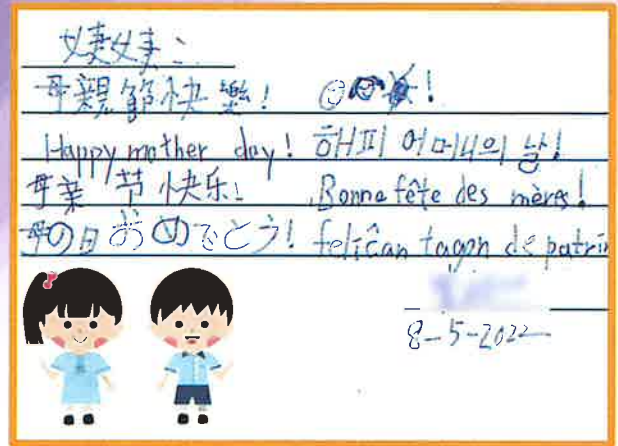 姨姨：
母親節快樂！
Happy mother day! 해피 어머니의 날!
母亲节快乐! Bonne fête des mères!
母の日おめでとう! feliĉan tagon de patrin
8-5-2022